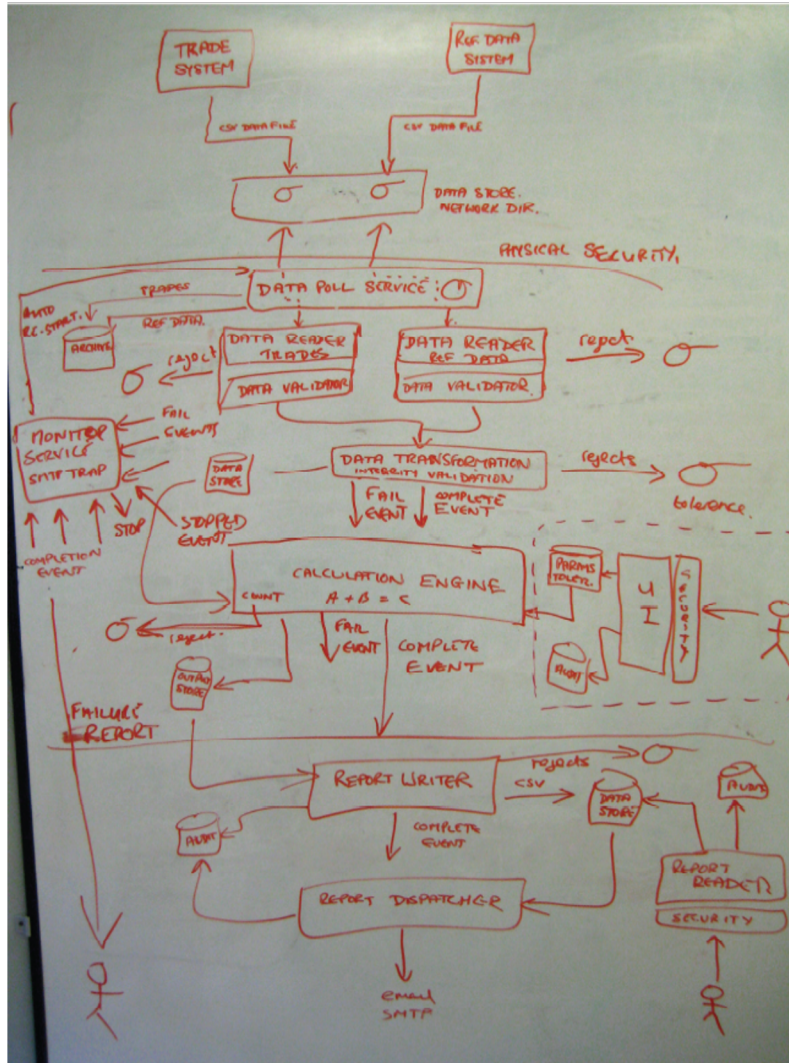 TRADE
SYSTEM
REF DATA
SISTEM
CSV DATA FILE
CSV DATA FILE
DATA STORE.
NETWORK DIR.
PHYSICAL SECURITY,
DATA POLL SERVICE
TRADES
AUTO
RE.START.
REF DATA.
ARCHIVE
DATA READER
TRADES
DATA VALIDATOR
DATA READER
REF DATA
DATA VALIDATOR
reject
reject
FAIL
EVENTS
MONITOR
SERVICE
SMTP TRAP
DATA
STORE
DATA TRANSFORMATION
INTEGRITY VALIDATION
rejects
tolerence.
FAIL
EVENT
COMPLETE
EVENT
STOP
STOPPED
EVENT
COMPLETION
EVENT
CALCULATION ENGINE
A + B = C
COUNT
PARAMS
TOLER.
UI
SECURITY
AUDIT
reject.
FAIL
EVENT
COMPLETE
EVENT
OUTPUT
STORE
FAILURE
REPORT
REPORT WRITER
rejects
CSV
DATA
STORE
AUDIT
AUDIT
COMPLETE
EVENT
REPORT
READER
SECURITY
REPORT DISPATCHER
email
SMTP